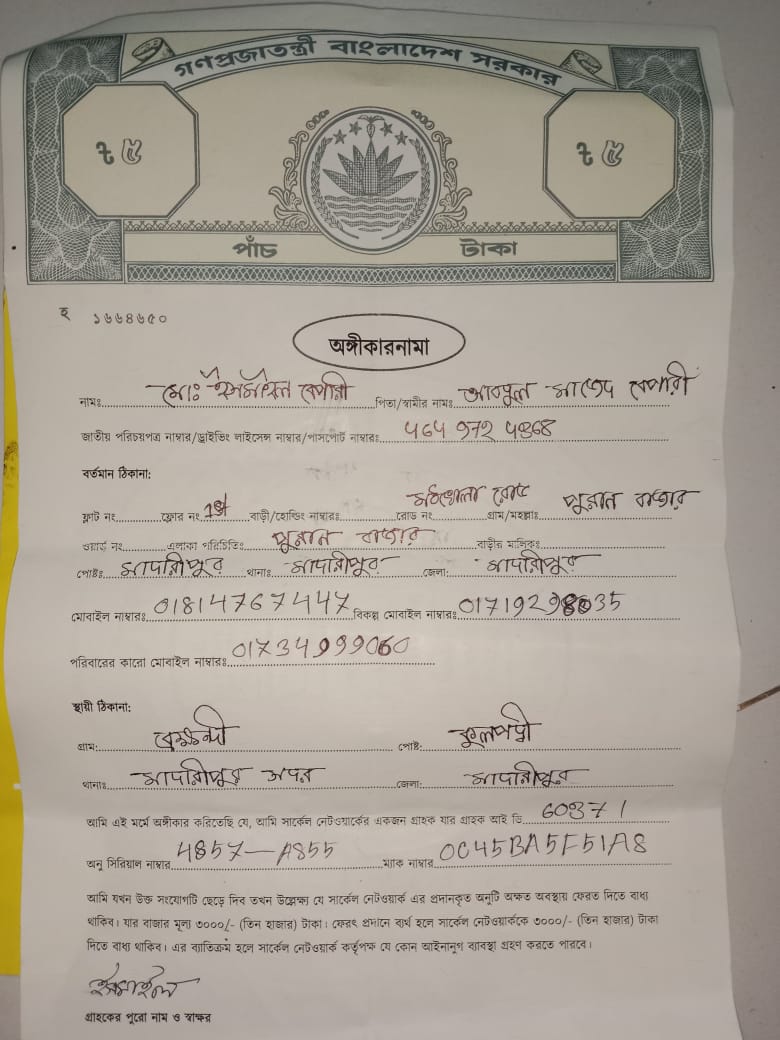 গণপ্রজাতন্ত্রী বাংলাদেশ সরকার
৳ ৫ ৳ ৫
পাঁচ টাকা
হ ১৬৬৪৬৫০
অঙ্গীকারনামা
নামঃ মোঃ ইসমাইল বেপারী পিতা/স্বামীর নামঃ আবদুল মাজেদ বেপারী
জাতীয় পরিচয়পত্র নাম্বার/ড্রাইভিং লাইসেন্স নাম্বার/পাসপোর্ট নাম্বারঃ 464 972 4368
বর্তমান ঠিকানা:
ফ্লাট নং ফ্লোর নং 1st বাড়ী/হোল্ডিং নাম্বারঃ রোড নং গ্রাম/মহল্লাঃ পুরান বাজার
ওয়ার্ড নং এলাকা পরিচিতিঃ পুরান বাজার বাড়ীর মালিকঃ
পোষ্টঃ মাদারীপুর থানাঃ মাদারীপুর জেলা: মাদারীপুর
মোবাইল নাম্বারঃ 01814767447 বিকল্প মোবাইল নাম্বারঃ
পরিবারের কারো মোবাইল নাম্বারঃ 01734999060
স্থায়ী ঠিকানা:
গ্রাম: পোষ্ট: কুলপদ্বী
থানাঃ মাদারীপুর জেলা: মাদারীপুর
আমি এই মর্মে অঙ্গীকার করিতেছি যে, আমি সার্কেল নেটওয়ার্কের একজন গ্রাহক যার গ্রাহক আই ডি 60371
অনু সিরিয়াল নাম্বার 4857-A855 ম্যাক নাম্বার 0C45BA5F51A8
আমি যখন উক্ত সংযোগটি ছেড়ে দিব তখন উল্লেক্ষ্য যে সার্কেল নেটওয়ার্ক এর প্রদানকৃত অনুটি অক্ষত অবস্থায় ফেরত দিতে বাধ্য
থাকিব। যার বাজার মূল্য ৩০০০/- (তিন হাজার) টাকা। ফেরৎ প্রদানে ব্যর্থ হলে সার্কেল নেটওয়ার্ককে ৩০০০/- (তিন হাজার) টাকা
দিতে বাধ্য থাকিব। এর ব্যাতিক্রম হলে সার্কেল নেটওয়ার্ক কর্তৃপক্ষ যে কোন আইনানুগ ব্যাবস্থা গ্রহণ করতে পারবে।
ইসমাইল
গ্রাহকের পুরো নাম ও স্বাক্ষর